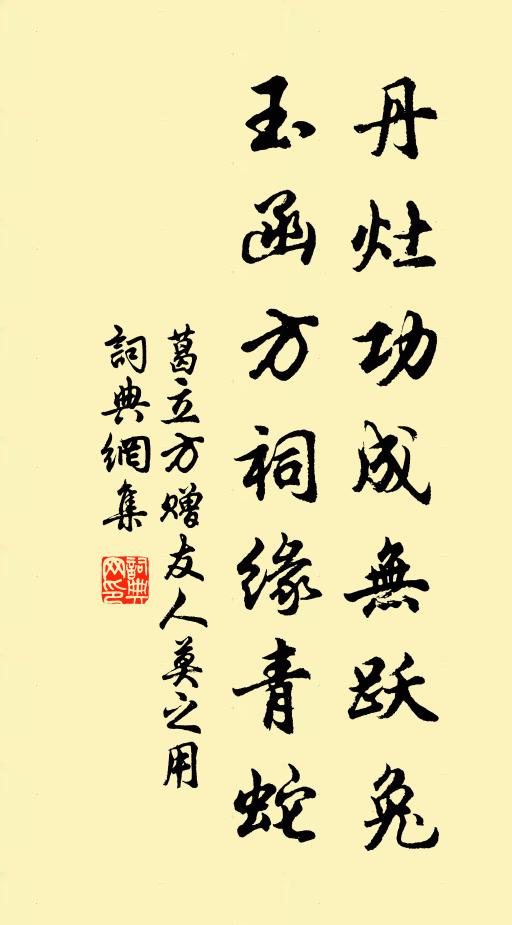 丹灶功成無跃兔
玉函方祠緣青蛇
葛立方赠友人莫之用
詞典網集
詞典网印